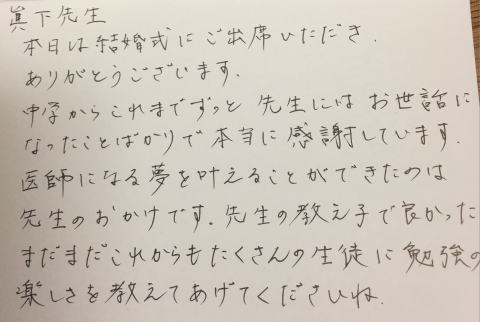 眞下先生
本日は結婚式にご出席いただき.
ありがとうございます.
中学からこれまでずっと 先生にはお世話に
なったことばかりで本当に感謝しています.
医師になる夢を叶えることができたのは
先生のおかげです. 先生の教え子で良かった
まだまだこれからもたくさんの生徒に勉強の
楽しさを教えてあげてくださいね.